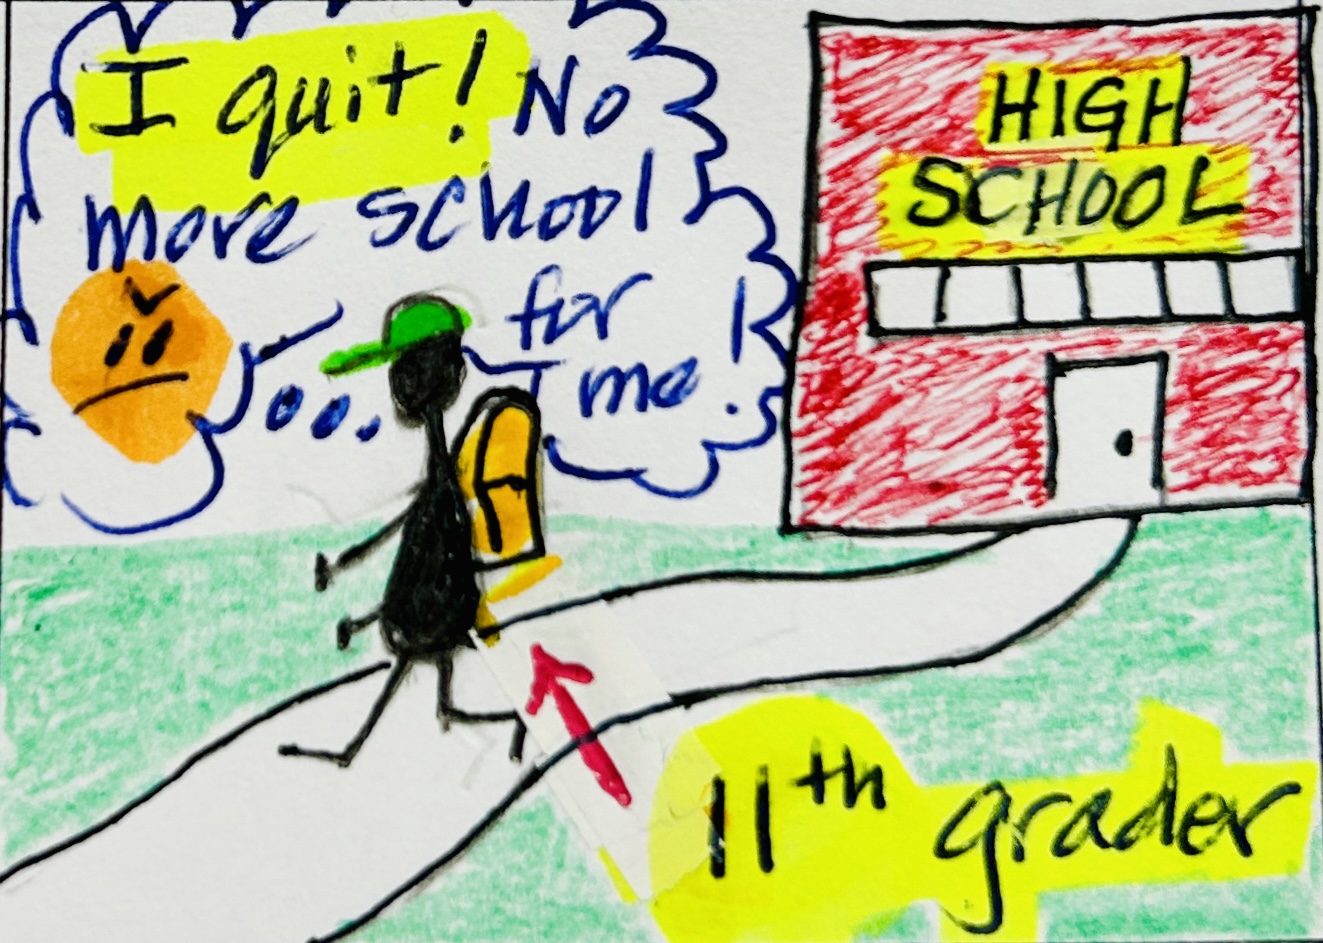 I quit! No
more school
for
me!
HIGH
SCHOOL
11th grader